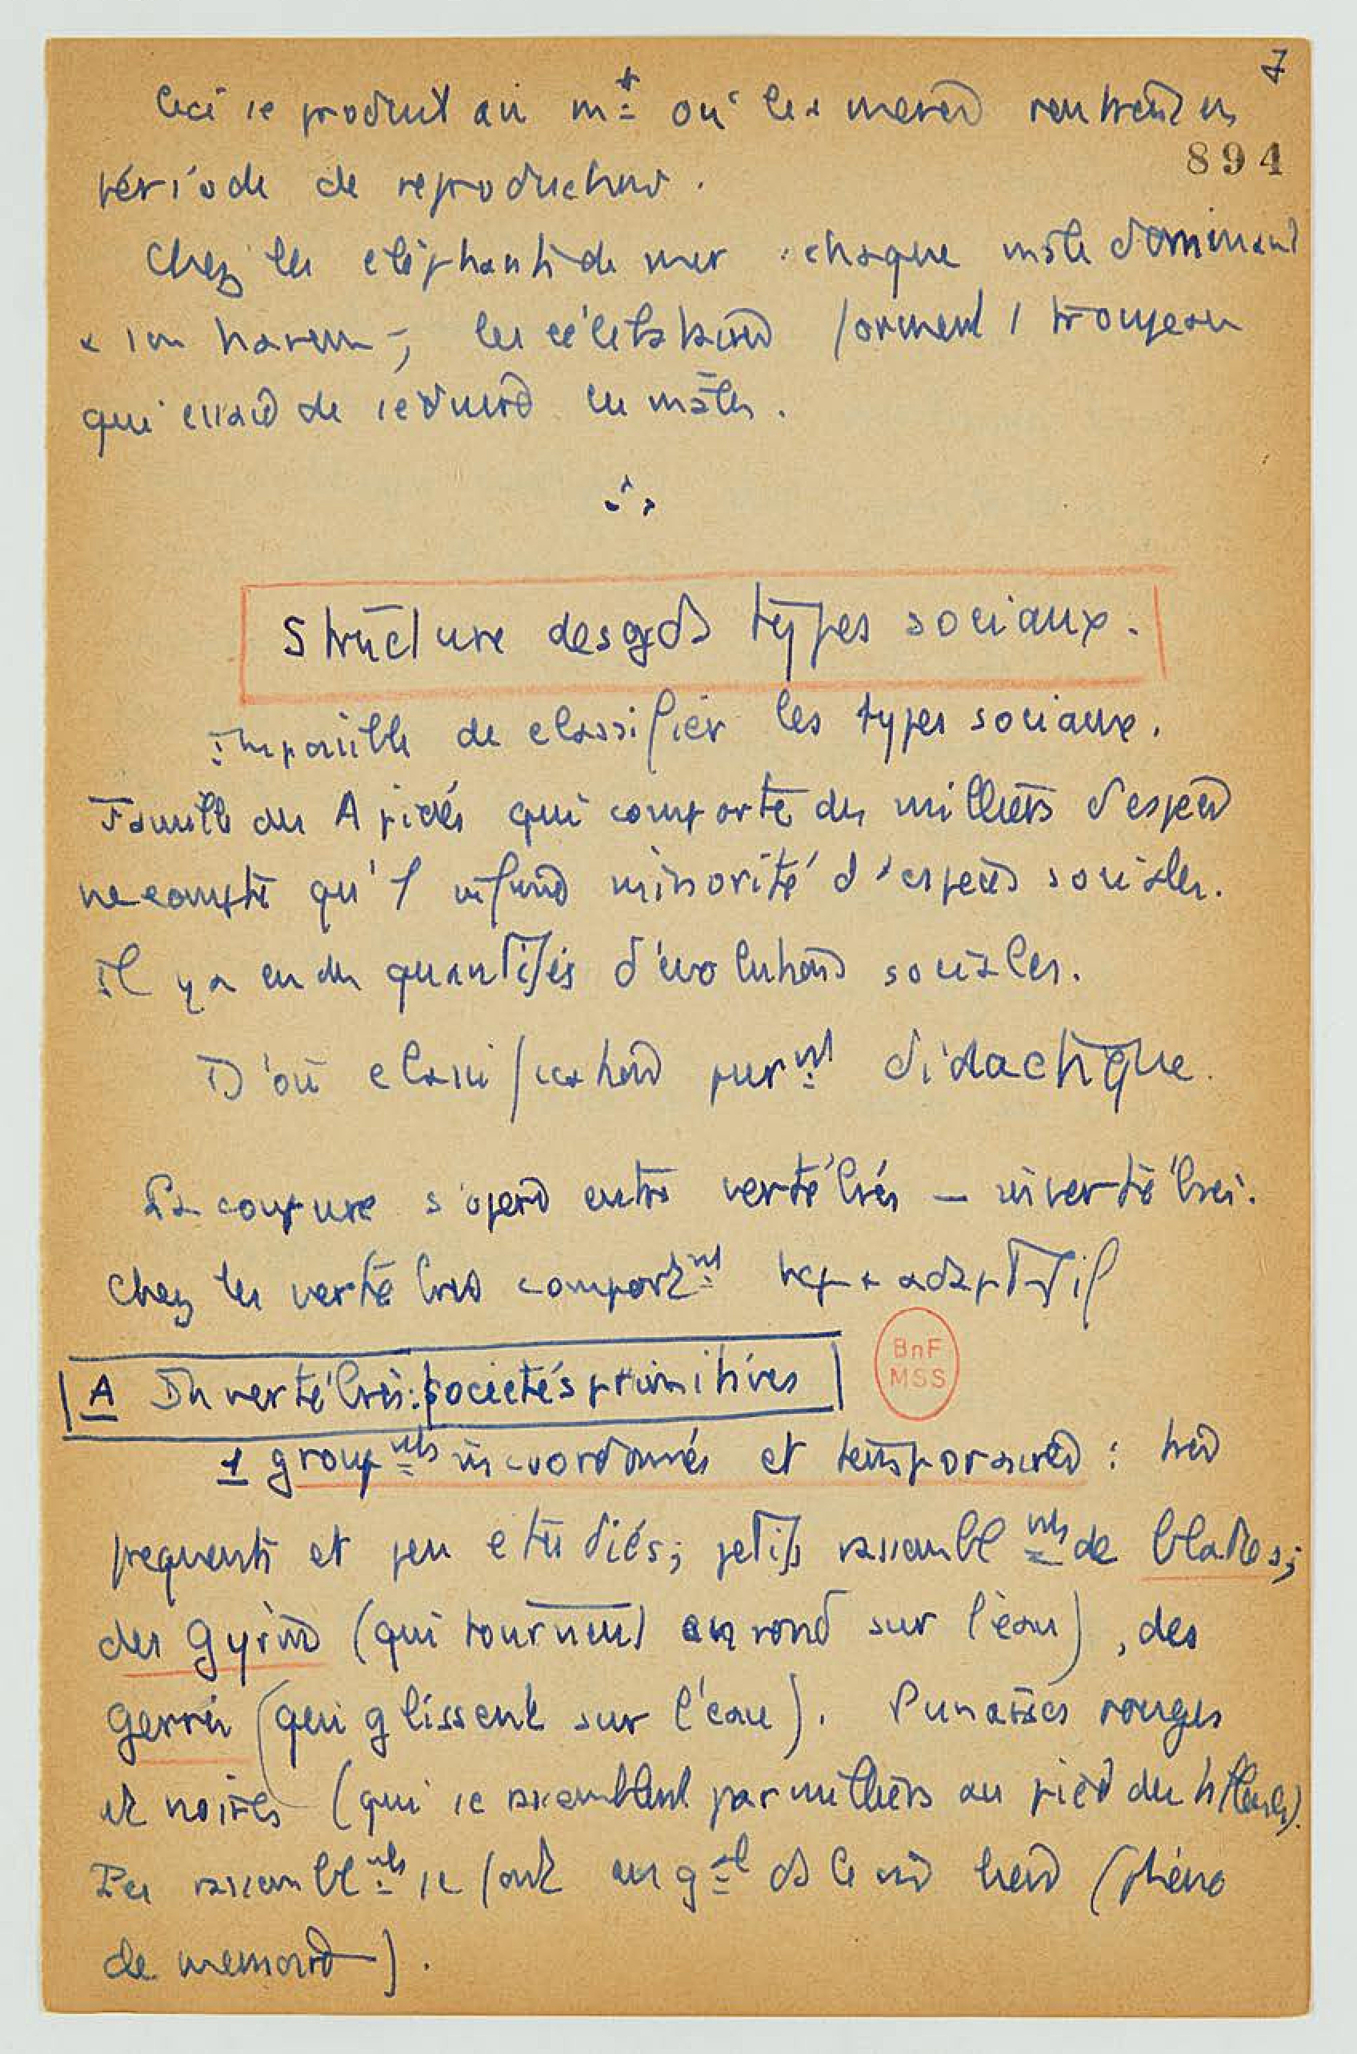 7
Ceci se produit au mt où les mères rentrent en
894
période de reproduction.
Chez les éléphants de mer : chaque mâle dominant
a son harem ; les célibataires forment 1 troupeau
qui essaie de séduire les mâles.
Structure des gds types sociaux.
Impossible de classifier les types sociaux.
Famille des Apidés qui comporte des milliers d'espèces
ne compte qu'1 infime minorité d'espèces sociales.
Il y a eu des quantités d'évolutions sociales.
D'où classification purmt didactique.
La coupure s'opère entre vertébrés – invertébrés.
Chez les vertébrés comportmt adaptatif
A Invertébrés : sociétés primitives
1 groupmts incoordonnés et temporaires : très
fréquents et peu étudiés ; petits rassemblmts de blattes ;
des Gyrins (qui tournent en rond sur l'eau), des
gerris (qui glissent sur l'eau). Punaises rouges
et noires (qui se rassemblent par milliers au pied des tilleuls).
Les rassemblmts se font en gal ds le mê lieu (phéno
de mémoire).
BnF
MSS